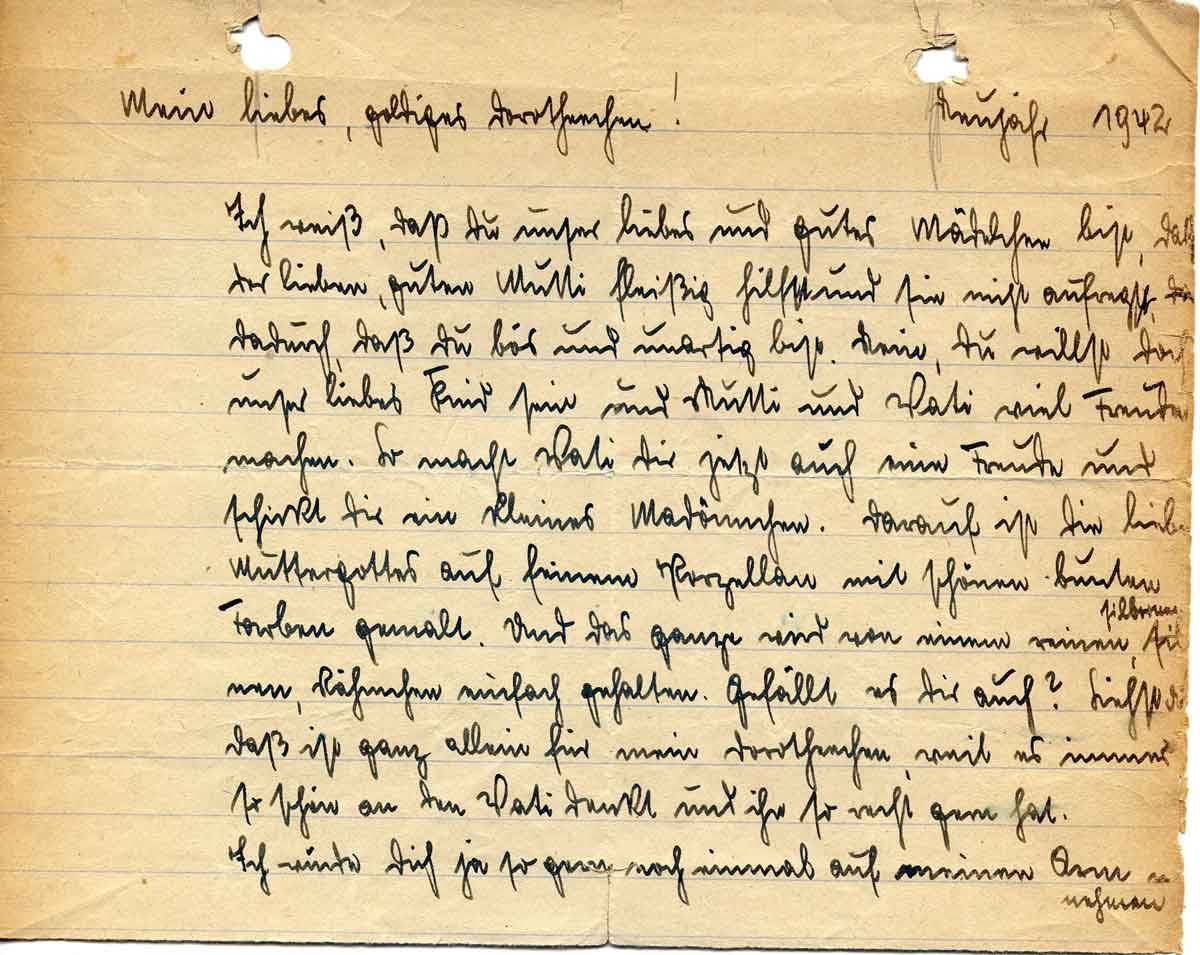 Mein liebes, goldiges Dorotheechen! Neujahr 1942
Ich weiß, daß Du unser liebes und gutes Mädelchen bist, daß
der lieben, guten Mutti fleißig hilfst und sie nicht aufregst,
dadurch, daß Du bös und unartig bist. Nein, Du willst doch
unser liebes Kind sein und Mutti und Vati viel Freude
machen. So macht Vati Dir jetzt auch eine Freude und
schickt Dir ein kleines Madönnchen. Darauf ist die liebe
Muttergottes auf feinem Porzellan mit schönen bunten
silbernen
Farben gemalt. Und das ganze wird von einem reinen, sil
nen, Rähmchen einfach gehalten. Gefällt es Dir auch? Siehst du
daß ist ganz allein für mein Dorotheechen, weil es immer
so schön an den Vati denkt und ihn so recht gern hat.
Ich würde Dich ja so gern noch einmal auf meinen Arm
nehmen